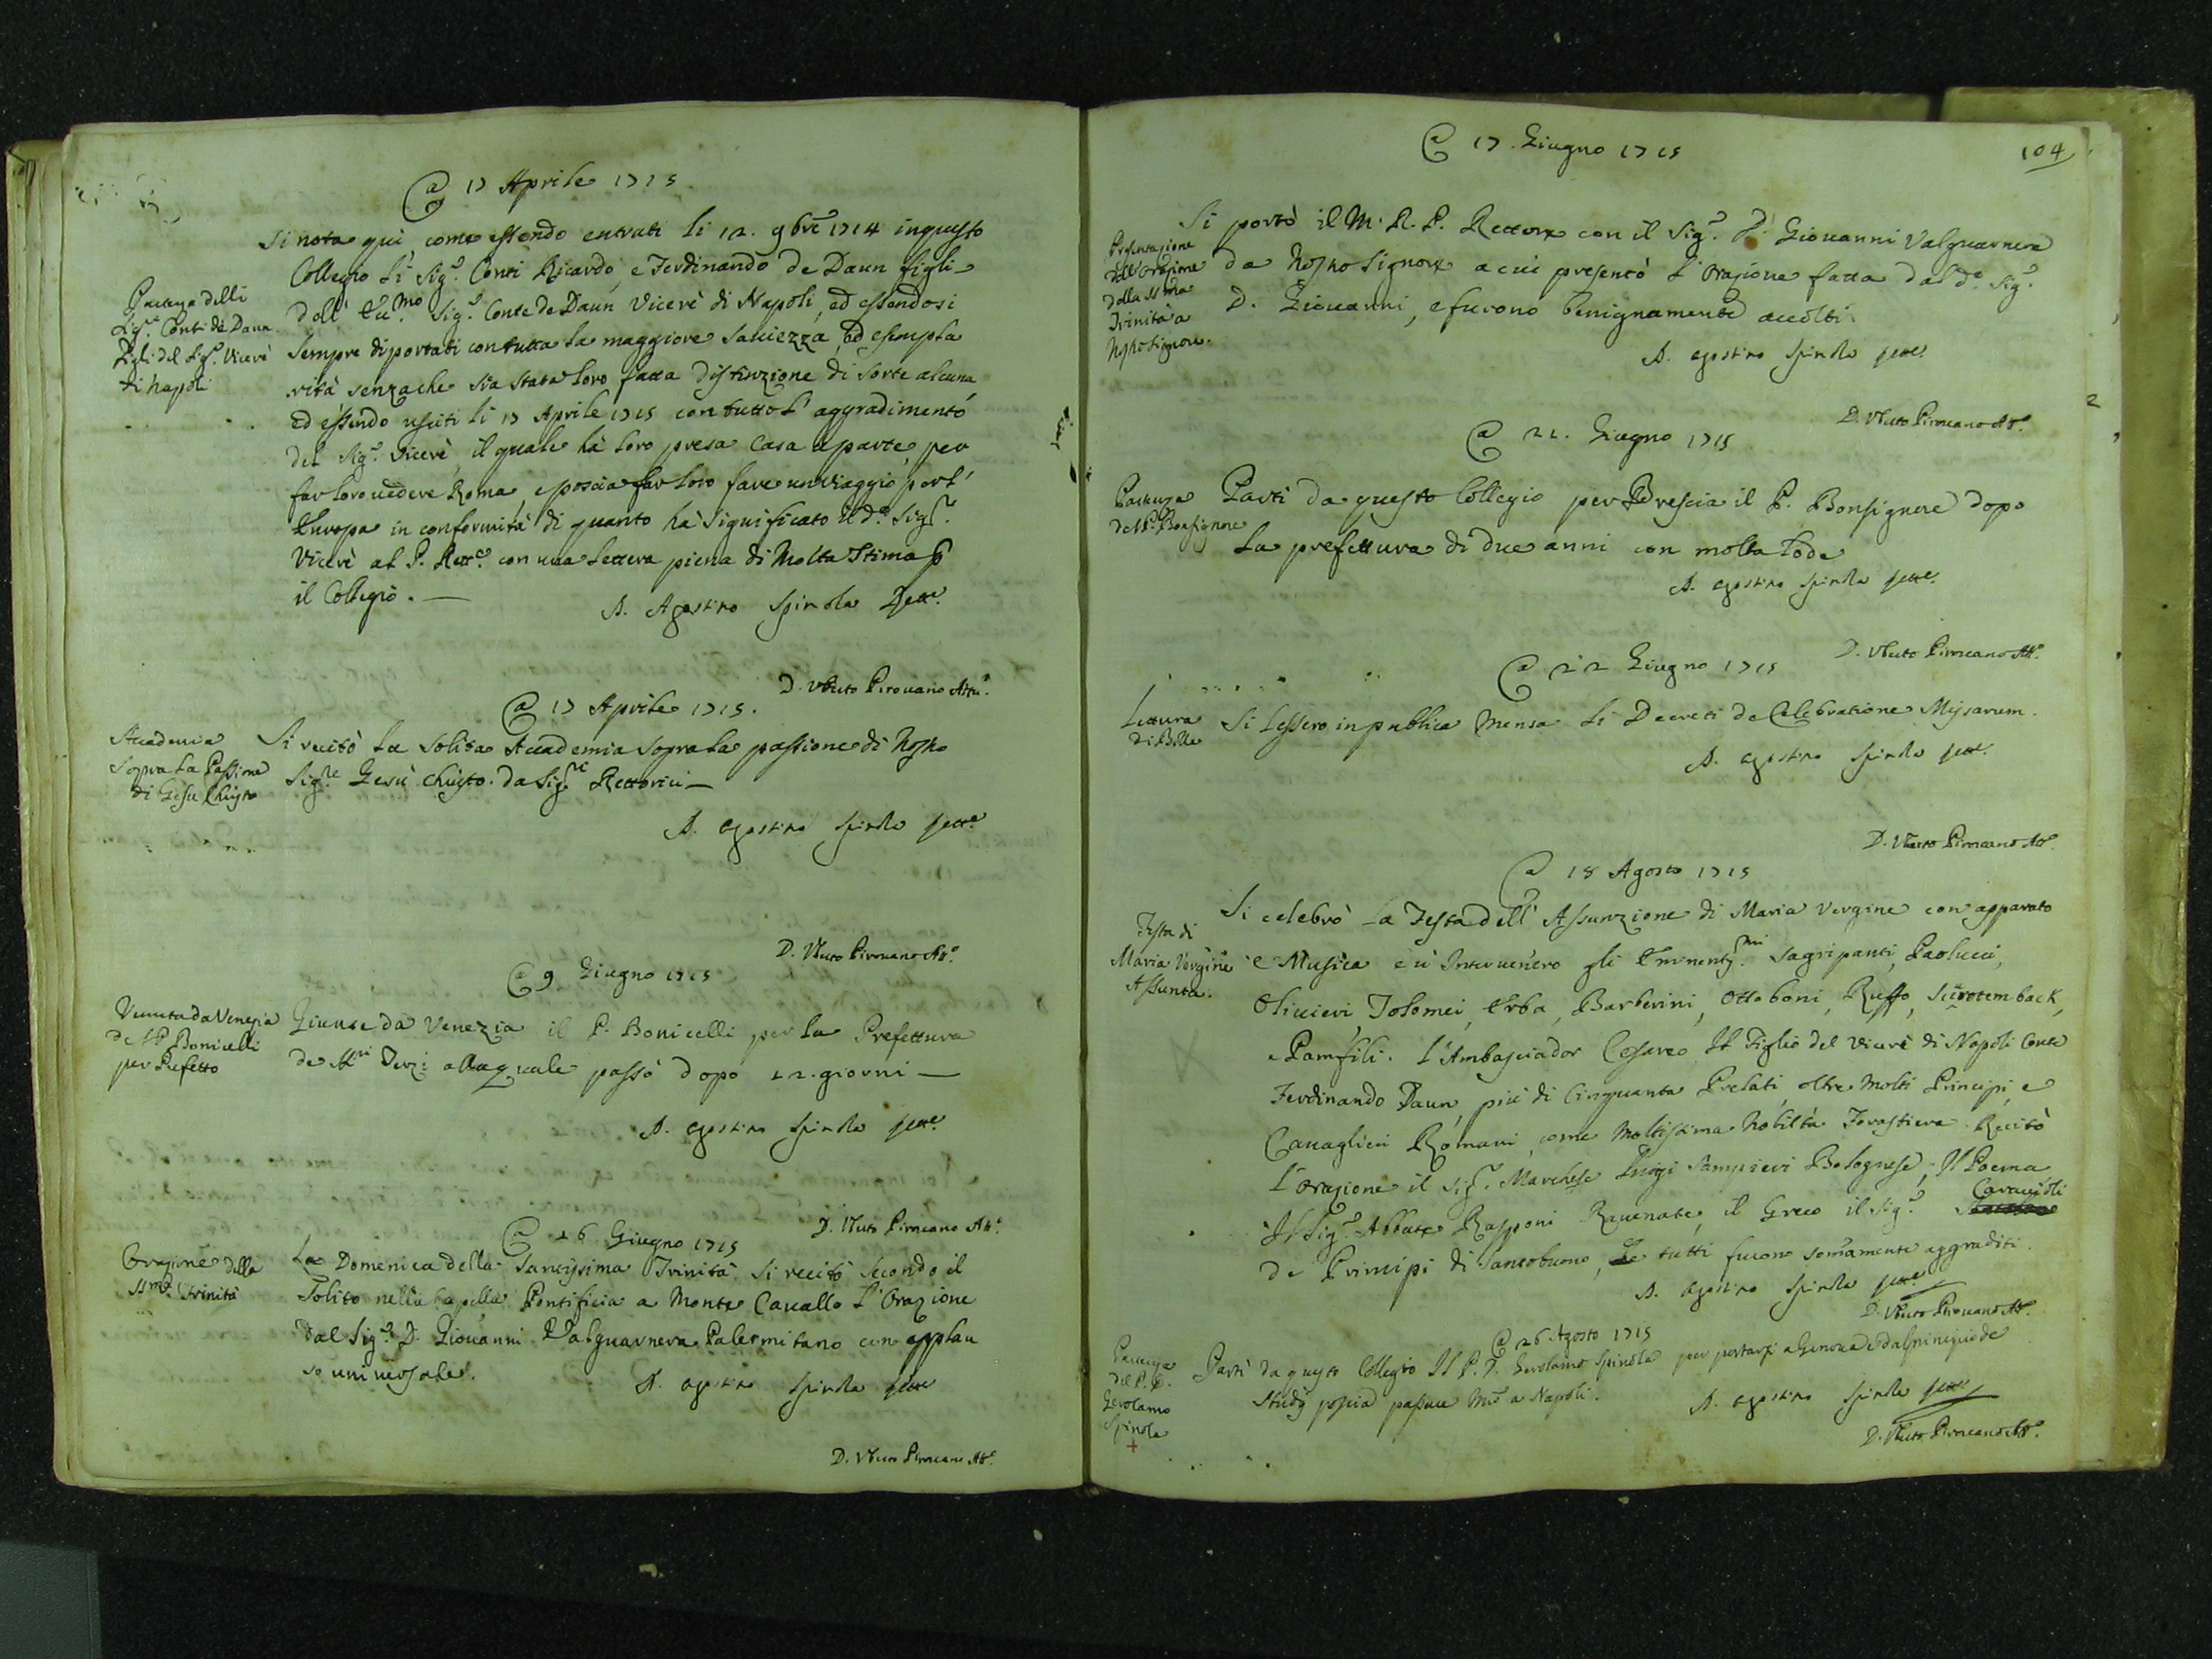 @ 17 Aprile 1715
Partenza delli
Sig.ri Conti de Daun
Figli del Sig.r Vicerè
di Napoli
Si nota quì come essendo entrati li 12. 9bre 1714 in questo
Collegio li Sig.ri Conti Ricardo, e Ferdinando de Daun figli
dell' Ecc.mo Sig.r Conte de Daun Vicerè di Napoli, ed essendosi
sempre diportati con tutta la maggiore saviezza, ed esempla
rità senzache sia stata loro fatta distinzione di sorte alcuna
ed essendo usciti li 17 Aprile 1715 con tutto l' aggradimento
del Sig.r Vicerè, il quale hà loro presa Casa a parte per
far loro vedere Roma, e poscia far loro fare un viaggio per l'
Europa in conformità di quanto hà significato il d.o Sig.r
Vicerè al P. Rett.e con una lettera piena di Molta Stima p
il Collegio. —
D. Agostino Spinola Rett.e
D. Pirovano Att.o
@ 17 Aprile 1715.
Academia
sopra la Passione
di Giesu Christo
Si recitò la solita Academia sopra la passione di Nostro
Sig.re Gesù Christo. da Sig.ri Rettorici —
D. Agostino Spinola Rett.e
D. Pirovano Att.o
@ 9 Giugno 1715
Venuta da Venezia
del P. Bonicelli
per Prefetto
Giunse da Venezia il P. Bonicelli per la Prefettura
de Terzi alla quale passò dopo 12. giorni —
D. Agostino Spinola Rett.e
D. Pirovano Att.o
@ 16 Giugno 1715
Orazione della
SS.ma Trinità
La Domenica della Santissima Trinità si recitò secondo il
Solito nella Capella Pontificia a Monte Cavallo l' Orazione
dal Sig.r D. Giovanni Valguarnera Palermitano con applau
so universale.
D. Agostino Spinola Rett.e
D. Pirovano Att.o
104
@ 17. Giugno 1715
Presentazione
dell' Orazione
della SS.ma
Trinità a
Nostro Signore.
Si portò il M. R. P. Rettore con il Sig.r D. Giovanni Valguarnera
da Nostro Signore a cui presentò l' Orazione fatta dal d.o Sig.r
D. Giovanni, e furono benignamente accolti
D. Agostino Spinola Rett.e
D. Pirovano Att.o
@ 21. Giugno 1715
Partenza
del P. Bonsignore
Partì da questo Collegio per Brescia il P. Bonsignore dopo
la prefettura di due anni con molta lode
D. Agostino Spinola Rett.e
D. Pirovano Att.o
@ 22 Giugno 1715
Lettura
di Bolle
Si lessero in publica Mensa li Decreti de Celebratione Missarum.
D. Agostino Spinola Rett.e
D. Pirovano Att.o
@ 18 Agosto 1715
Festa di
Maria Vergine
Assunta.
Si celebrò la Festa dell' Assunzione di Maria Vergine con apparato
e Musica e ci Intervenero gli Eminentis.mi Sagripanti, Paolucci,
Olivieri, Tolomei, Erba, Barberini, Ottoboni, Ruffo, Scrotemback,
e Pamfili. L'Ambasciador Cesareo Il Figlio del Vicerè di Napoli Conte
Ferdinando Daun, più di Cinquanta Prelati, oltre Molti Principi, e
Cavaglieri Romani, come Moltissima Nobiltà Forastiera. Recitò
L' Orazione il Sig.r Marchese Luigi Sampieri Bolognese, Il Poema
Il Sig.r Abbate Rasponi Ravenate, il Greco il Sig.r Caraccioli
de Principi di Santobuono, e tutti furono som̃amente aggraditi.
D. Agostino Spinola Rett.e
D. Pirovano Att.o
@ 26 Agosto 1715
Partenza
del P. D.
Gerolamo
Spinola
+
Partì da questo Collegio Il P. D. Gerolamo Spinola per portarsi a Genova
Studij poscia a Napoli.
D. Agostino Spinola Rett.e
D. Pirovano Att.o